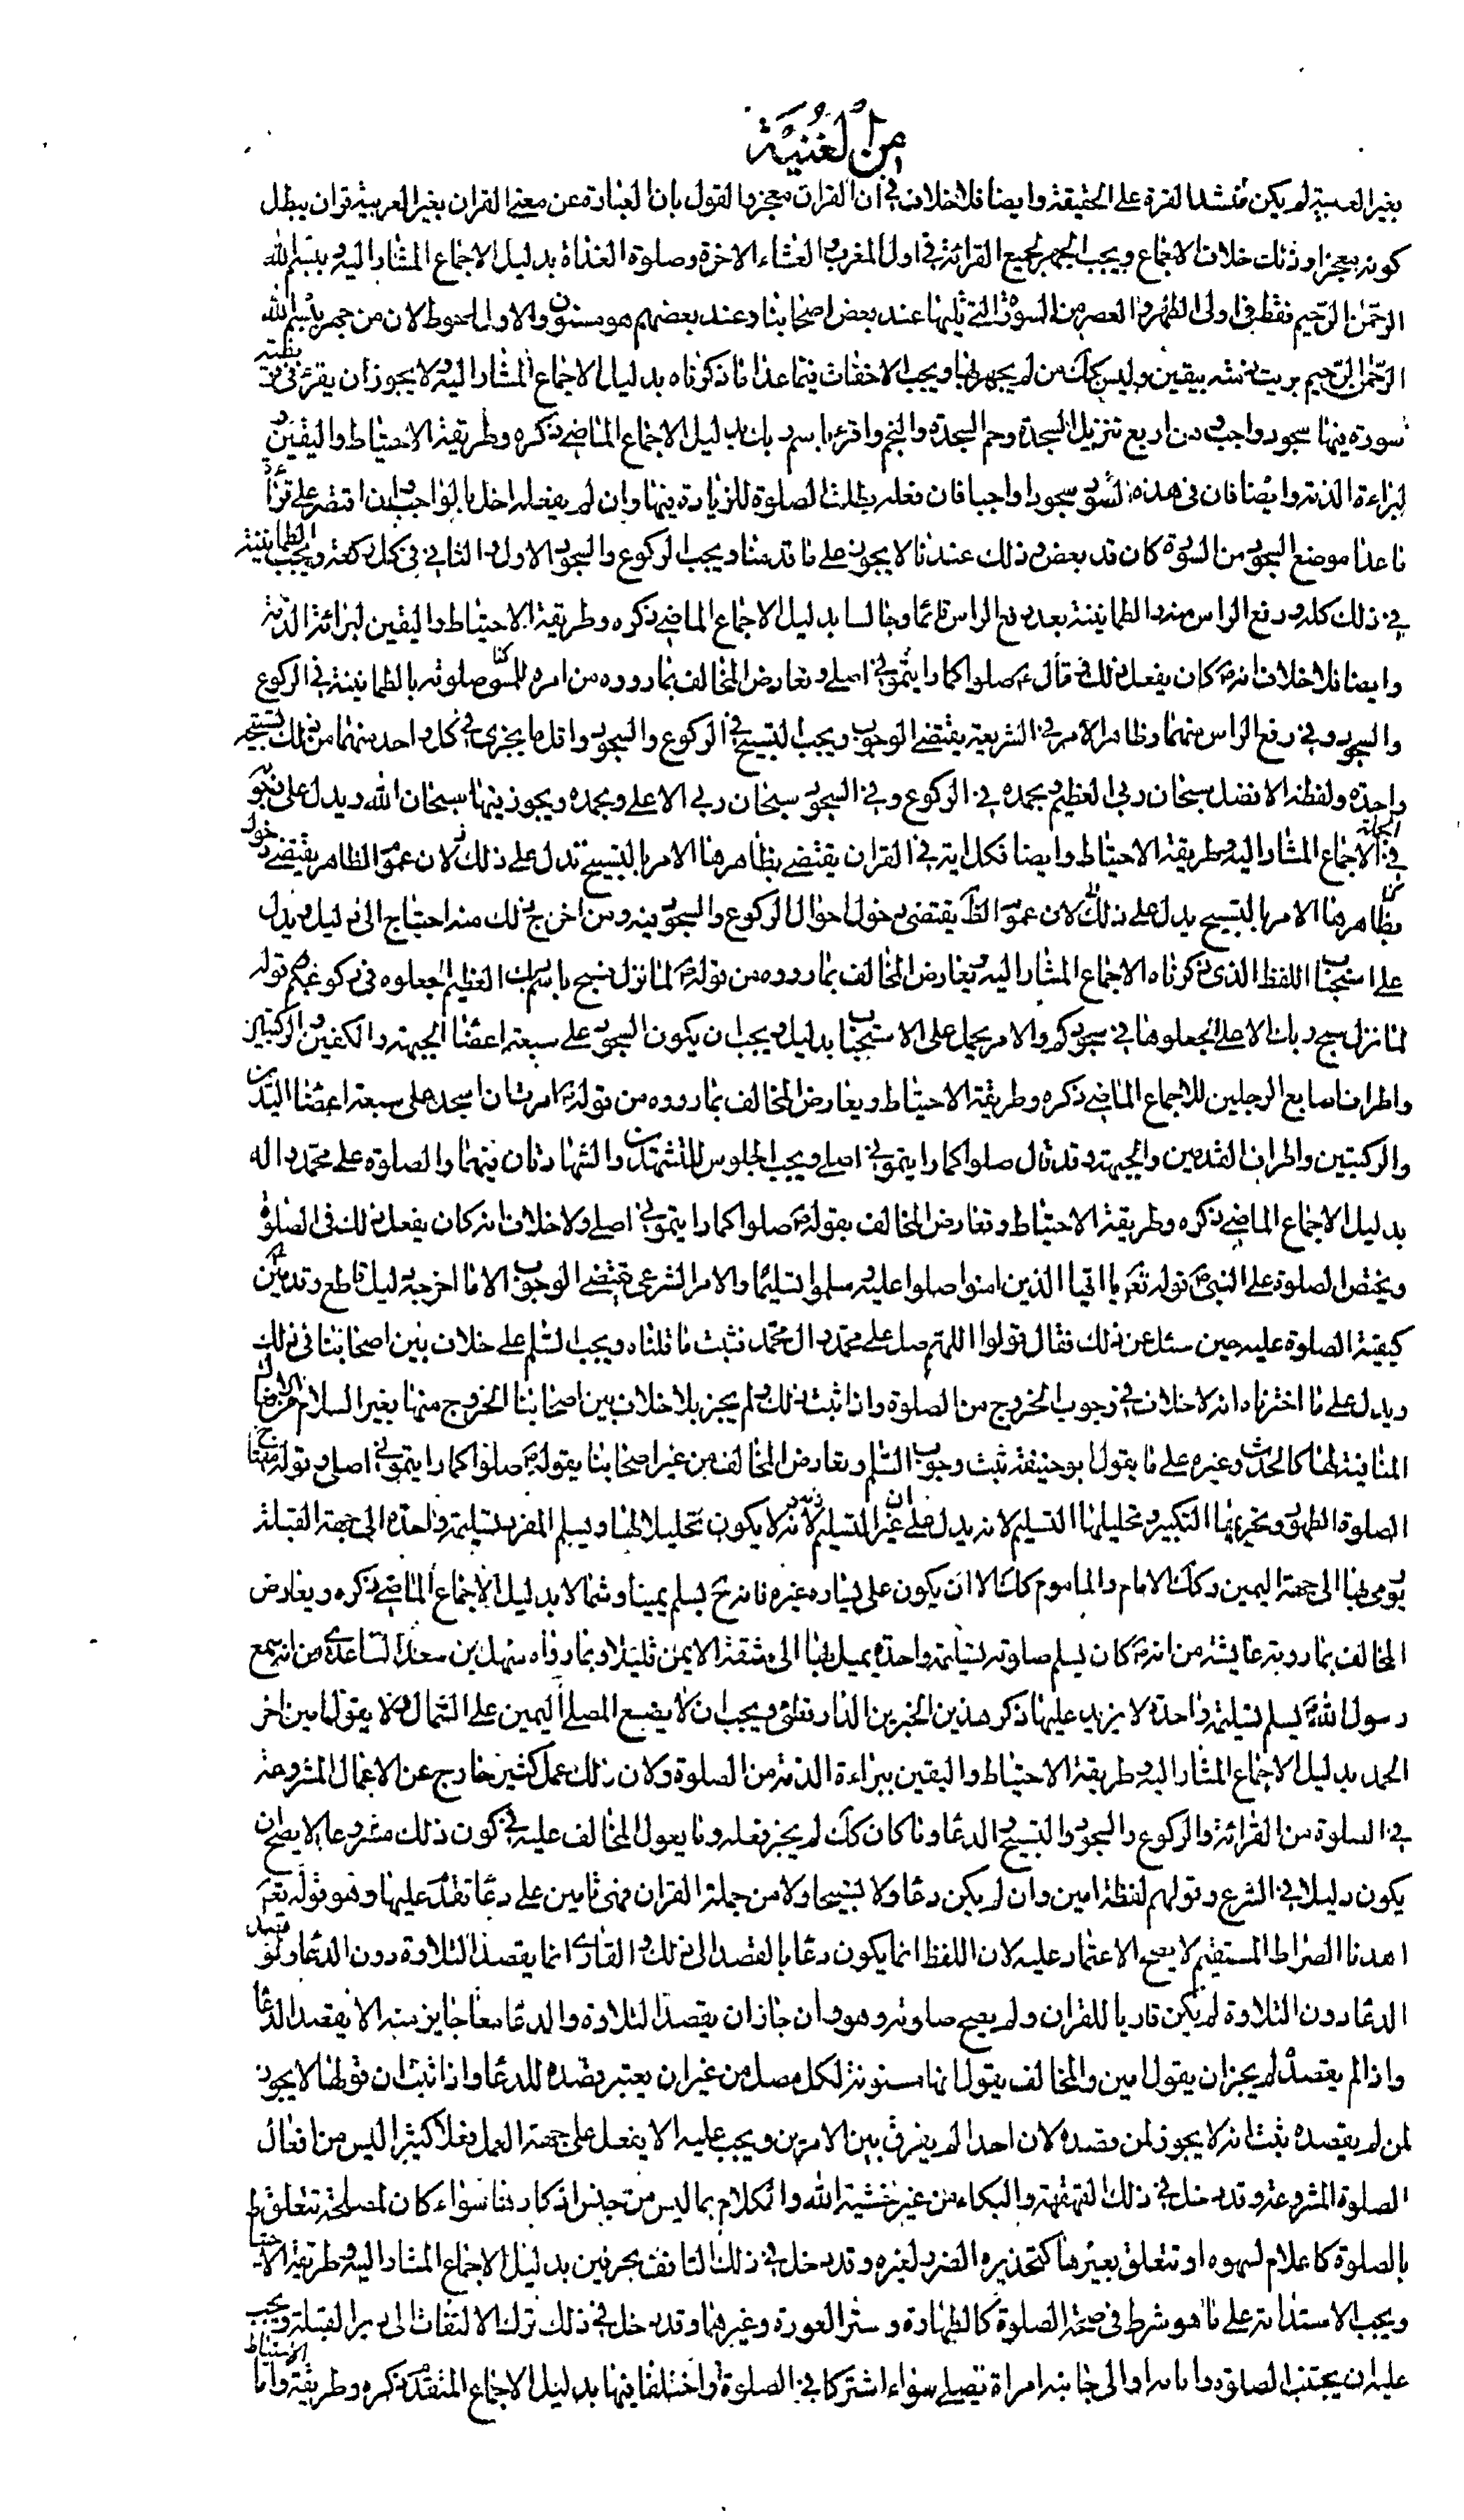 من الغنية
بغير العربية لم يكن منشدا لقرة على الحقيقة وايضا فلا خلاف في ان القران معجز والقول بان العبادة عن معنى القران بغير العربية قران يبطل
كونه معجزا وذلك خلاف الاجماع ويجب الجهر بجميع القرائة في اول المغرب والعشاء الاخرة وصلوة الغداة بدليل الاجماع المشار اليه وببسم الله
الرحمن الرحيم فقط في اولى الظهر والعصر من السورة التي تليها عند بعض اصحابنا وعند بعضهم هو مسنون والاول احوط لان من جهر ببسم الله
الرحمن الرحيم بريت ذمته بيقين وليس كك من لم يجهر بها ويجب الاخفات فيما عدا ما ذكرناه بدليل الاجماع المشار اليه ولا يجوز ان يقرء في فريضة
سورة فيها سجود واجب وهن اربع تنزيل السجدة وحم السجدة والنجم واقرء باسم ربك بدليل الاجماع الماضي ذكره وطريقة الاحتياط واليقين
لبراءة الذمة وايضا فان في هذه السور سجودا واجبا فان فعله بطلت الصلوة للزيادة فيها وان لم يفعله اخل بالواجب وان اقتصر على قرائة
ما عدا موضع السجود من السورة كان قد بعض وذلك عندنا لا يجوز على ما قدمنا ويجب الركوع والسجود الاول والثاني في كل ركعة ويجب الطمانينة
في ذلك كله ورفع الراس منه والطمانينة بعد رفع الراس قائما وجالسا بدليل الاجماع الماضي ذكره وطريقة الاحتياط واليقين لبرائة الذمة
وايضا فلا خلاف انه كان يفعل ذلك وقال صلوا كما رايتموني اصلي ونعارض المخالف بما رووه من امره للمسي صلوته بالطمانينة في الركوع
والسجود وفي رفع الراس منهما وظاهر الامر في الشريعة يقتضي الوجوب ويجب التسبيح في الركوع والسجود واقل ما يجزي في كل واحد منهما من ذلك تسبيحة
واحدة ولفظه الافضل سبحان ربي العظيم وبحمده في الركوع وفي السجود سبحان ربي الاعلى وبحمده ويجوز فيها سبحان الله ويدل على وجوبه
في الجملة الاجماع المشار اليه وطريقة الاحتياط وايضا فكل اية في القران يقتضي بظاهرها الامر بالتسبيح تدل على ذلك لان عموم الظاهر يقتضي دخول
بظاهرها الامر بالتسبيح يدل على ذلك لان عموم الظ يقتضى دخول احوال الركوع والسجود فيه ومن اخرج ذلك منه احتاج الى دليل ويدل
على استحباب اللفظ الذي ذكرناه الاجماع المشار اليه ونعارض المخالف بما رووه من قوله لما نزل فسبح باسم ربك العظيم اجعلوه في ركوعكم وقوله
لما نزل سبح ربك الاعلى اجعلوها في سجودكم والامر يحمل على الاستحباب بدليل ويجب ان يكون السجود على سبعة اعضا الجبهة والكفين والركبتين
واطراف اصابع الرجلين للاجماع الماضي ذكره وطريقة الاحتياط ويعارض المخالف بما رووه من قوله امرت ان اسجد على سبعة اعضا اليدين
والركبتين واطراف القدمين والجبهة وقد قال صلوا كما رايتموني اصلي ويجب الجلوس للتشهدين والشهادتان فيهما والصلوة على محمد واله
بدليل الاجماع الماضي ذكره وطريقة الاحتياط ونعارض المخالف بقوله صلوا كما رايتموني اصلي ولا خلاف انه كان يفعل ذلك في الصلوة
ويخص الصلوة على النبي قوله تع يا ايها الذين امنوا صلوا عليه وسلموا تسليما والامر الشرعي يقتضي الوجوب الا ما اخرجه دليل قاطع وقد بين
كيفية الصلوة عليه حين سئل عن ذلك فقال قولوا اللهم صل على محمد وال محمد فثبت ما قلناه ويجب السلم على خلاف بين اصحابنا في ذلك
ويدل على ما اخترناه انه لا خلاف في وجوب الخروج من الصلوة واذا ثبت ذلك ولم يجز بلا خلاف بين اصحابنا الخروج منها بغير السلام من الافعال
المنافية لها كالحدث وغيره على ما يقول ابو حنيفة ثبت وجوب السلم ونعارض المخالف من غير اصحابنا بقوله صلوا كما رايتموني اصلي وقوله مفتاح
الصلوة الطهور وتحريمها التكبير وتحليلها التسليم لانه يدل على ان غير التسليم لا يكون تحليلا لها ويسلم المفرد تسليمة واحدة الى جهة القبلة
يومى بها الى جهة اليمين وكك الامام والماموم كك الا ان يكون على يساره غيره فانه ح يسلم يمينا وشمالا بدليل الاجماع الماضي ذكره ويعارض
المخالف بما روته عايشة من انه كان يسلم في صلوته تسليمة واحدة يميل بها الى شقه الايمن قليلا وبما رواه سهل بن سعد الساعدي من انه سمع
رسول الله يسلم تسليمة واحدة لا يزيد عليها ذكر هذين الخبرين الدارقطني ويجب ان لا يضع المصلي اليمين على الشمال ولا يقول امين اخر
الحمد بدليل الاجماع المشار اليه وطريقة الاحتياط واليقين ببراءة الذمة من الصلوة ولان ذلك عمل كثير خارج عن الاعمال المشروعة
في الصلوة من القرائة والركوع والسجود والتسبيح والدعا وما كان كك لم يجز فعله وما يعول المخالف عليه في كون ذلك مشروعا لا يصح ان
يكون دليلا في الشرع وقولهم لفظة امين وان لم يكن دعا ولا تسبيحا ولا من جملة القران فهي تامين على دعا تقدم عليها وهو قوله تع
اهدنا الصراط المستقيم لا يصح الاعتماد عليه لان اللفظ انما يكون دعا بالقصد الى ذلك والقاري انما يقصد التلاوة دون الدعا ولو قصد
الدعا دون التلاوة لم يكن قاريا للقران ولم يصح صلوته وهو وان جاز ان يقصد التلاوة والدعا معا جايز منه الا يقصد الدعا
واذا لم يقصده لم يجز ان يقول امين والمخالف يقول انها مسنونة لكل مصل من غير ان يعتبر قصده للدعا واذا ثبت ان قولها لا يجوز
لمن لم يقصده ثبت انه لا يجوز لمن قصده لان احدا لم يفرق بين الامرين ويجب عليه الا يفعل على جهة العمل فعلا كثيرا ليس من افعال
الصلوة المشروعة وقد دخل في ذلك القهقهة والبكاء من غير خشية الله والكلام بما ليس من جنس اذكارها سواء كان لمصلحة تتعلق
بالصلوة كاعلام لسهوه او تتعلق بغيرها كتحذيره الضرر لغيره وقد دخل في ذلك التافف بحرفين بدليل الاجماع المشار اليه وطريقة الاحتياط
ويجب الاستدامة على ما هو شرط في صحة الصلوة كالطهارة وستر العورة وغيرهما وقد دخل في ذلك ترك الالتفات الى دبر القبلة ويجب
عليه ان يجتنب الصلوة وامامه او الى جانبه امراة تصلي سواء اشتركا في الصلوة او اختلفا فيها بدليل الاجماع المتقدم ذكره وطريقة الاحتياط واما